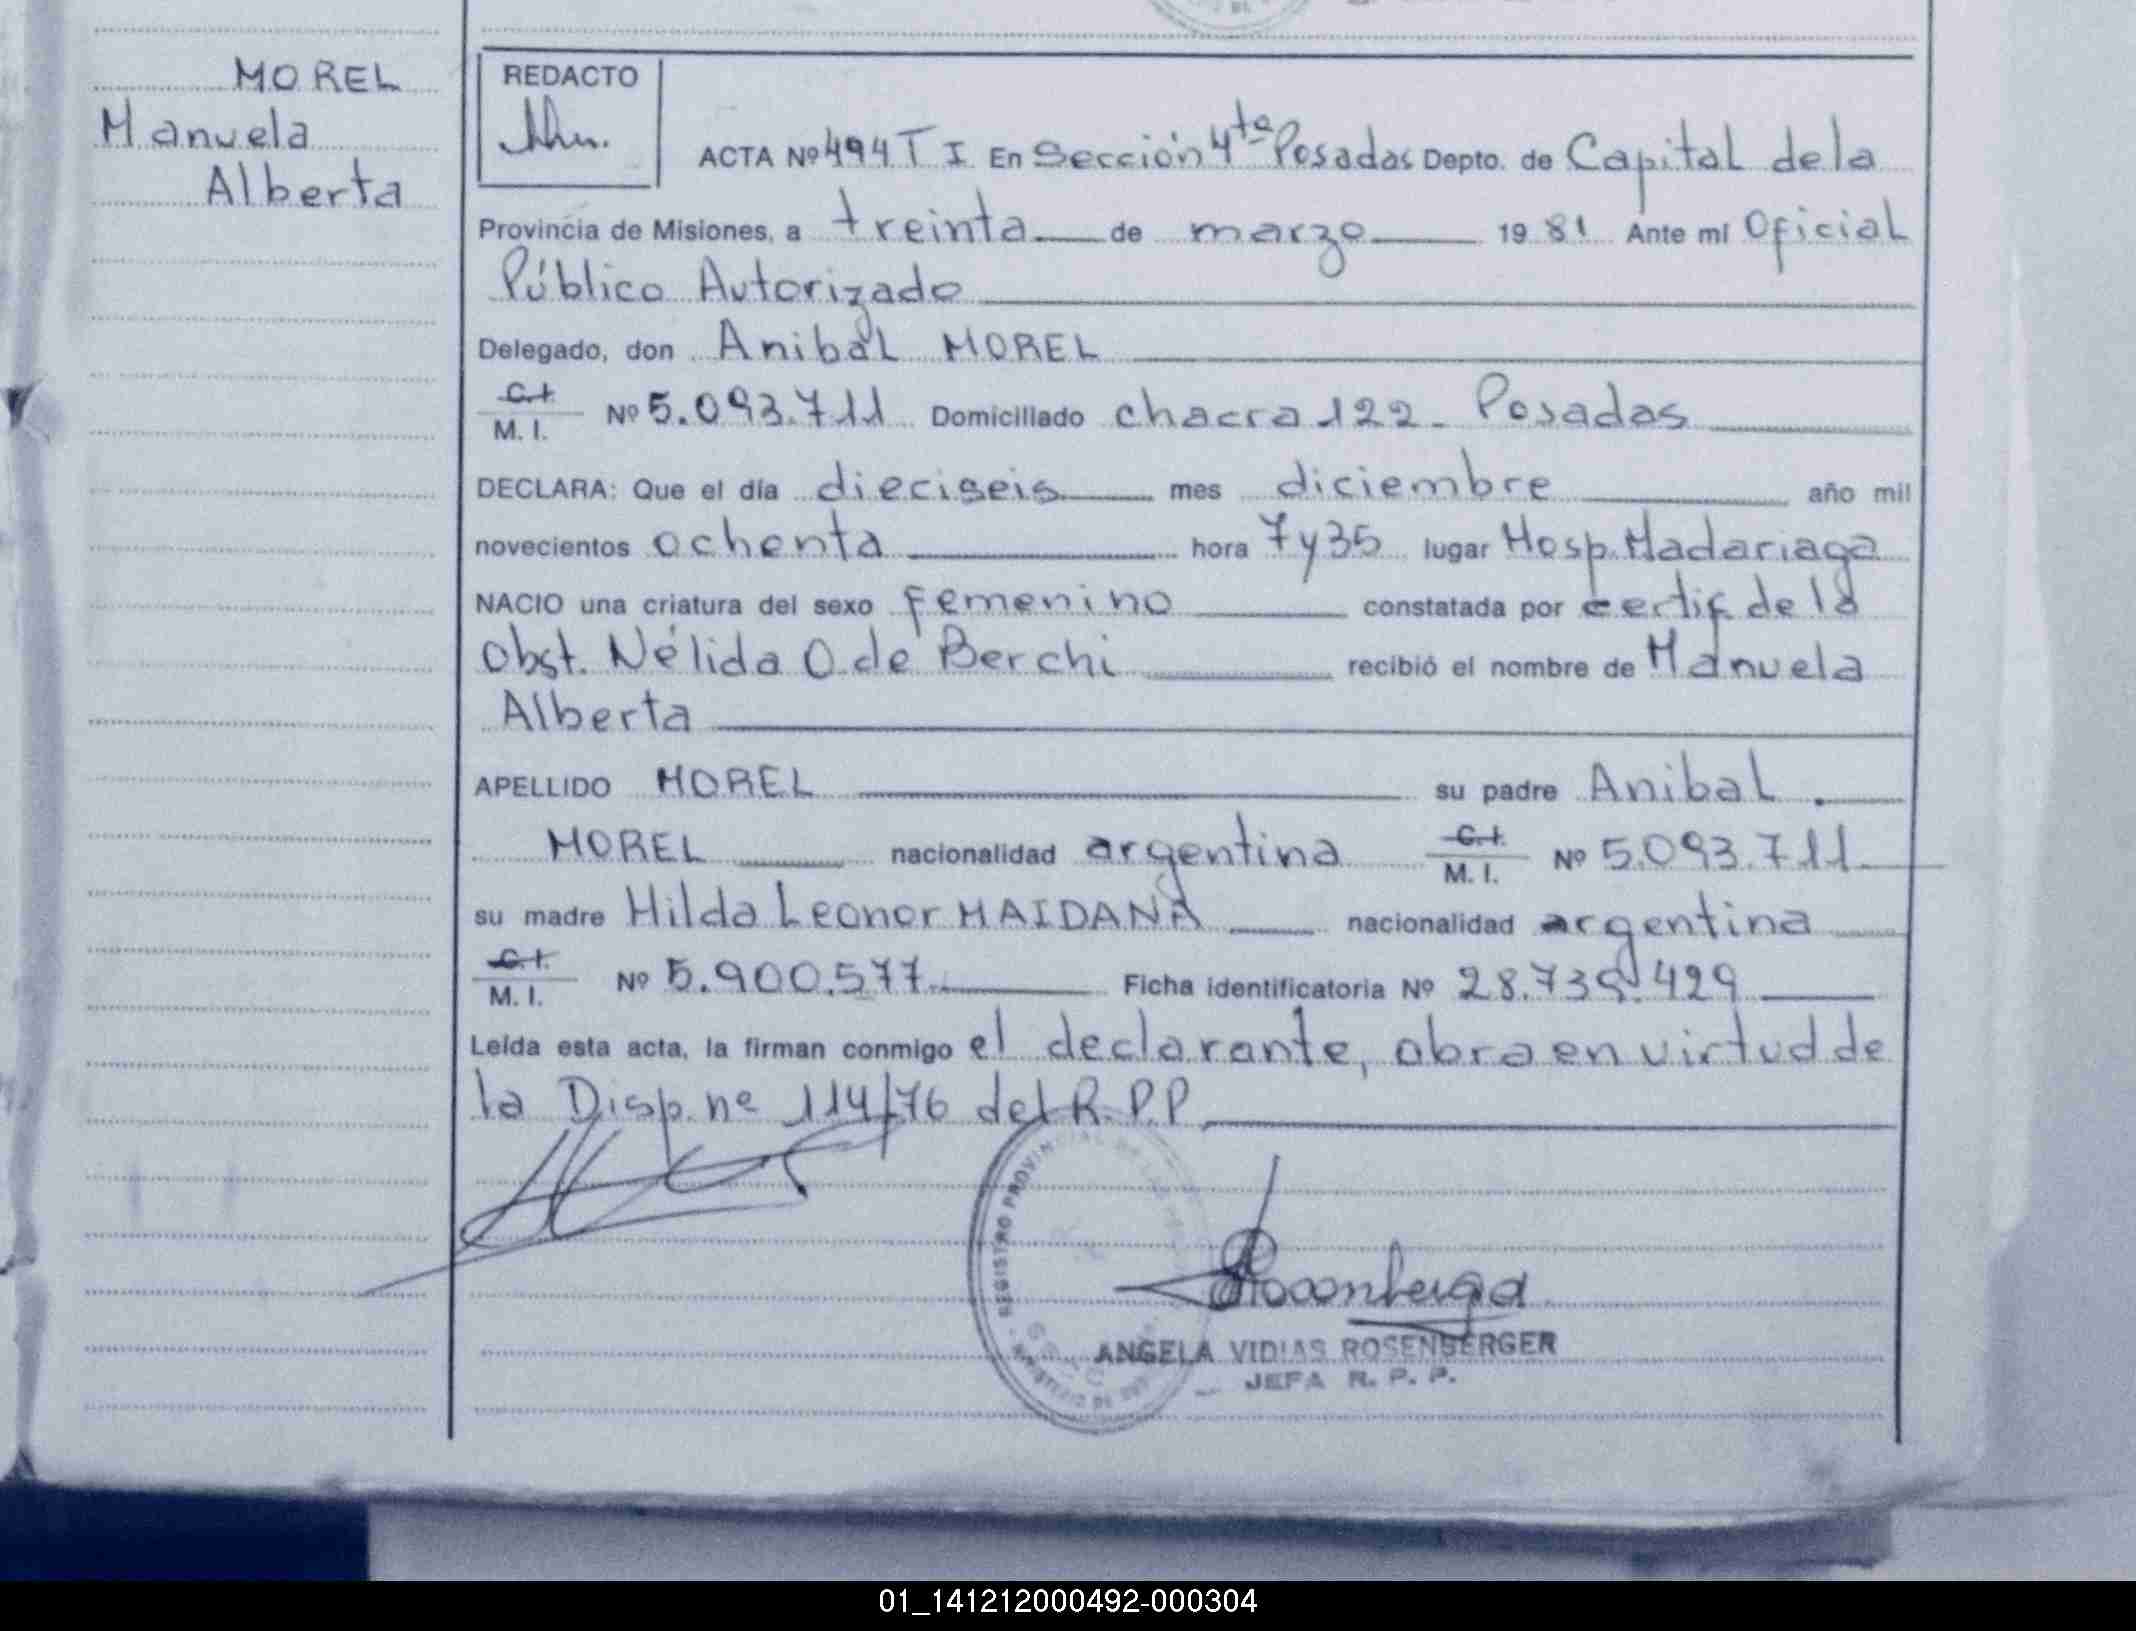 MOREL
Manuela
Alberta
REDACTO
ACTA Nº 494 T I En Sección 4ta Posadas Depto. de Capital de la
Provincia de Misiones, a treinta de marzo 1981 Ante mí Oficial
Público Autorizado
Delegado, don Anibal MOREL
C.I. M. I. Nº 5.093.711 Domiciliado chacra 122 - Posadas
DECLARA: Que el día dieciseis mes diciembre año mil
novecientos ochenta hora 7 y 35 lugar Hosp. Madariaga
NACIO una criatura del sexo femenino constatada por certif. de la
Obst. Nélida O. de Berchi recibió el nombre de Manuela
Alberta
APELLIDO MOREL su padre Anibal
MOREL nacionalidad argentina C.I. M. I. Nº 5.093.711
su madre Hilda Leonor MAIDANA nacionalidad argentina
C.I. M. I. Nº 5.900.577 Ficha identificatoria Nº 28.739.429
Leída esta acta, la firman conmigo el declarante, obra en virtud de
la Disp. nº 114/76 del R.P.P
REGISTRO PROVINCIAL DE LAS
ANGELA VIDIAS ROSENBERGER
JEFA R. P. P.
01_141212000492-000304